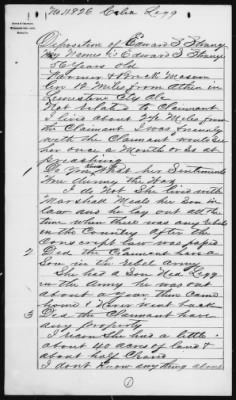 No 11826 Calia Legg
Deposition of Edward S. Strange
My Name is Edward S. Strange
56 Years old
Farmer & Brick Mason
Live 10 Miles from Athen in
Limestone Cty Ala
Not Related to Claimant
I lived about 2½ Miles from
the Claimant I was friendly
with the Claimant would see
her once a Month or so at
preaching
1 Do you Know her Sentiments
during the War
I do Not She lived with
Marshall Meals her Son in
law and he lay out all the
time when there was any rebels
in the Country after the
Conscript law was passed
2 Did the Claimant have a
Son in the rebel army
She had a Son Ned Legg
in the Army he was out
about a year then came
home & Never went back
3 Did the Claimant have
any property
I recon She had a little
about 40 acres of land &
about half Cleard
I don't Know any thing about
1